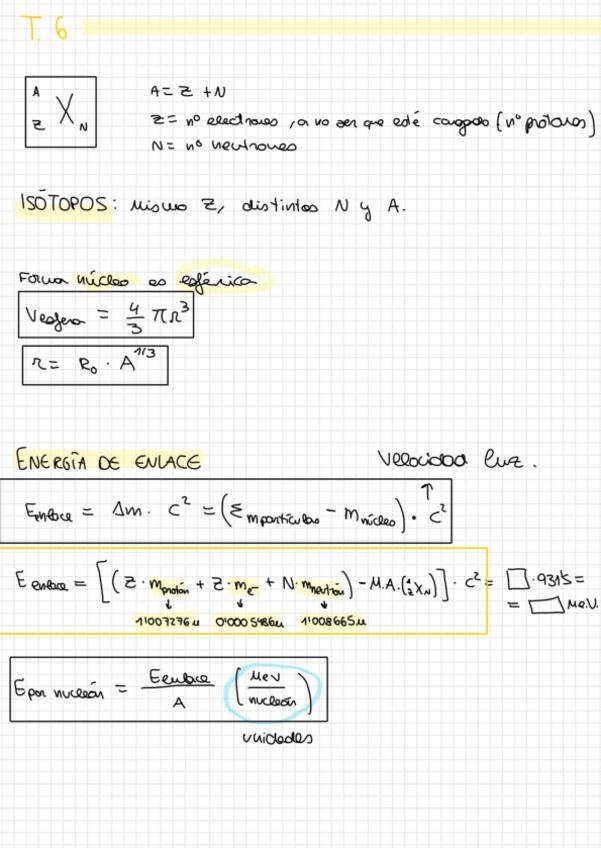 T. 6
A Z X N
A = Z + N
Z = nº electrones, a no ser que esté cargado (nº protones)
N = nº neutrones
ISÓTOPOS: mismo Z, distintos N y A.
Forma núcleo es esférica
Vesfera = 4/3 πr³
r = R₀ · A^1/3
ENERGÍA DE ENLACE
Velocidad luz.
↑
Eenlace = Δm · c² = (Σ mpartículas − mnúcleo) · c²
Eenlace = [(Z · mprotón + Z · me⁻ + N · mneutrón) − M.A.(A Z X N)] · c² = □ · 931'5 =
= □ MeV.
↓ ↓ ↓
1'007276u 0'0005486u 1'008665u
Epor nucleón = Eenlace/A (MeV/nucleón)
unidades